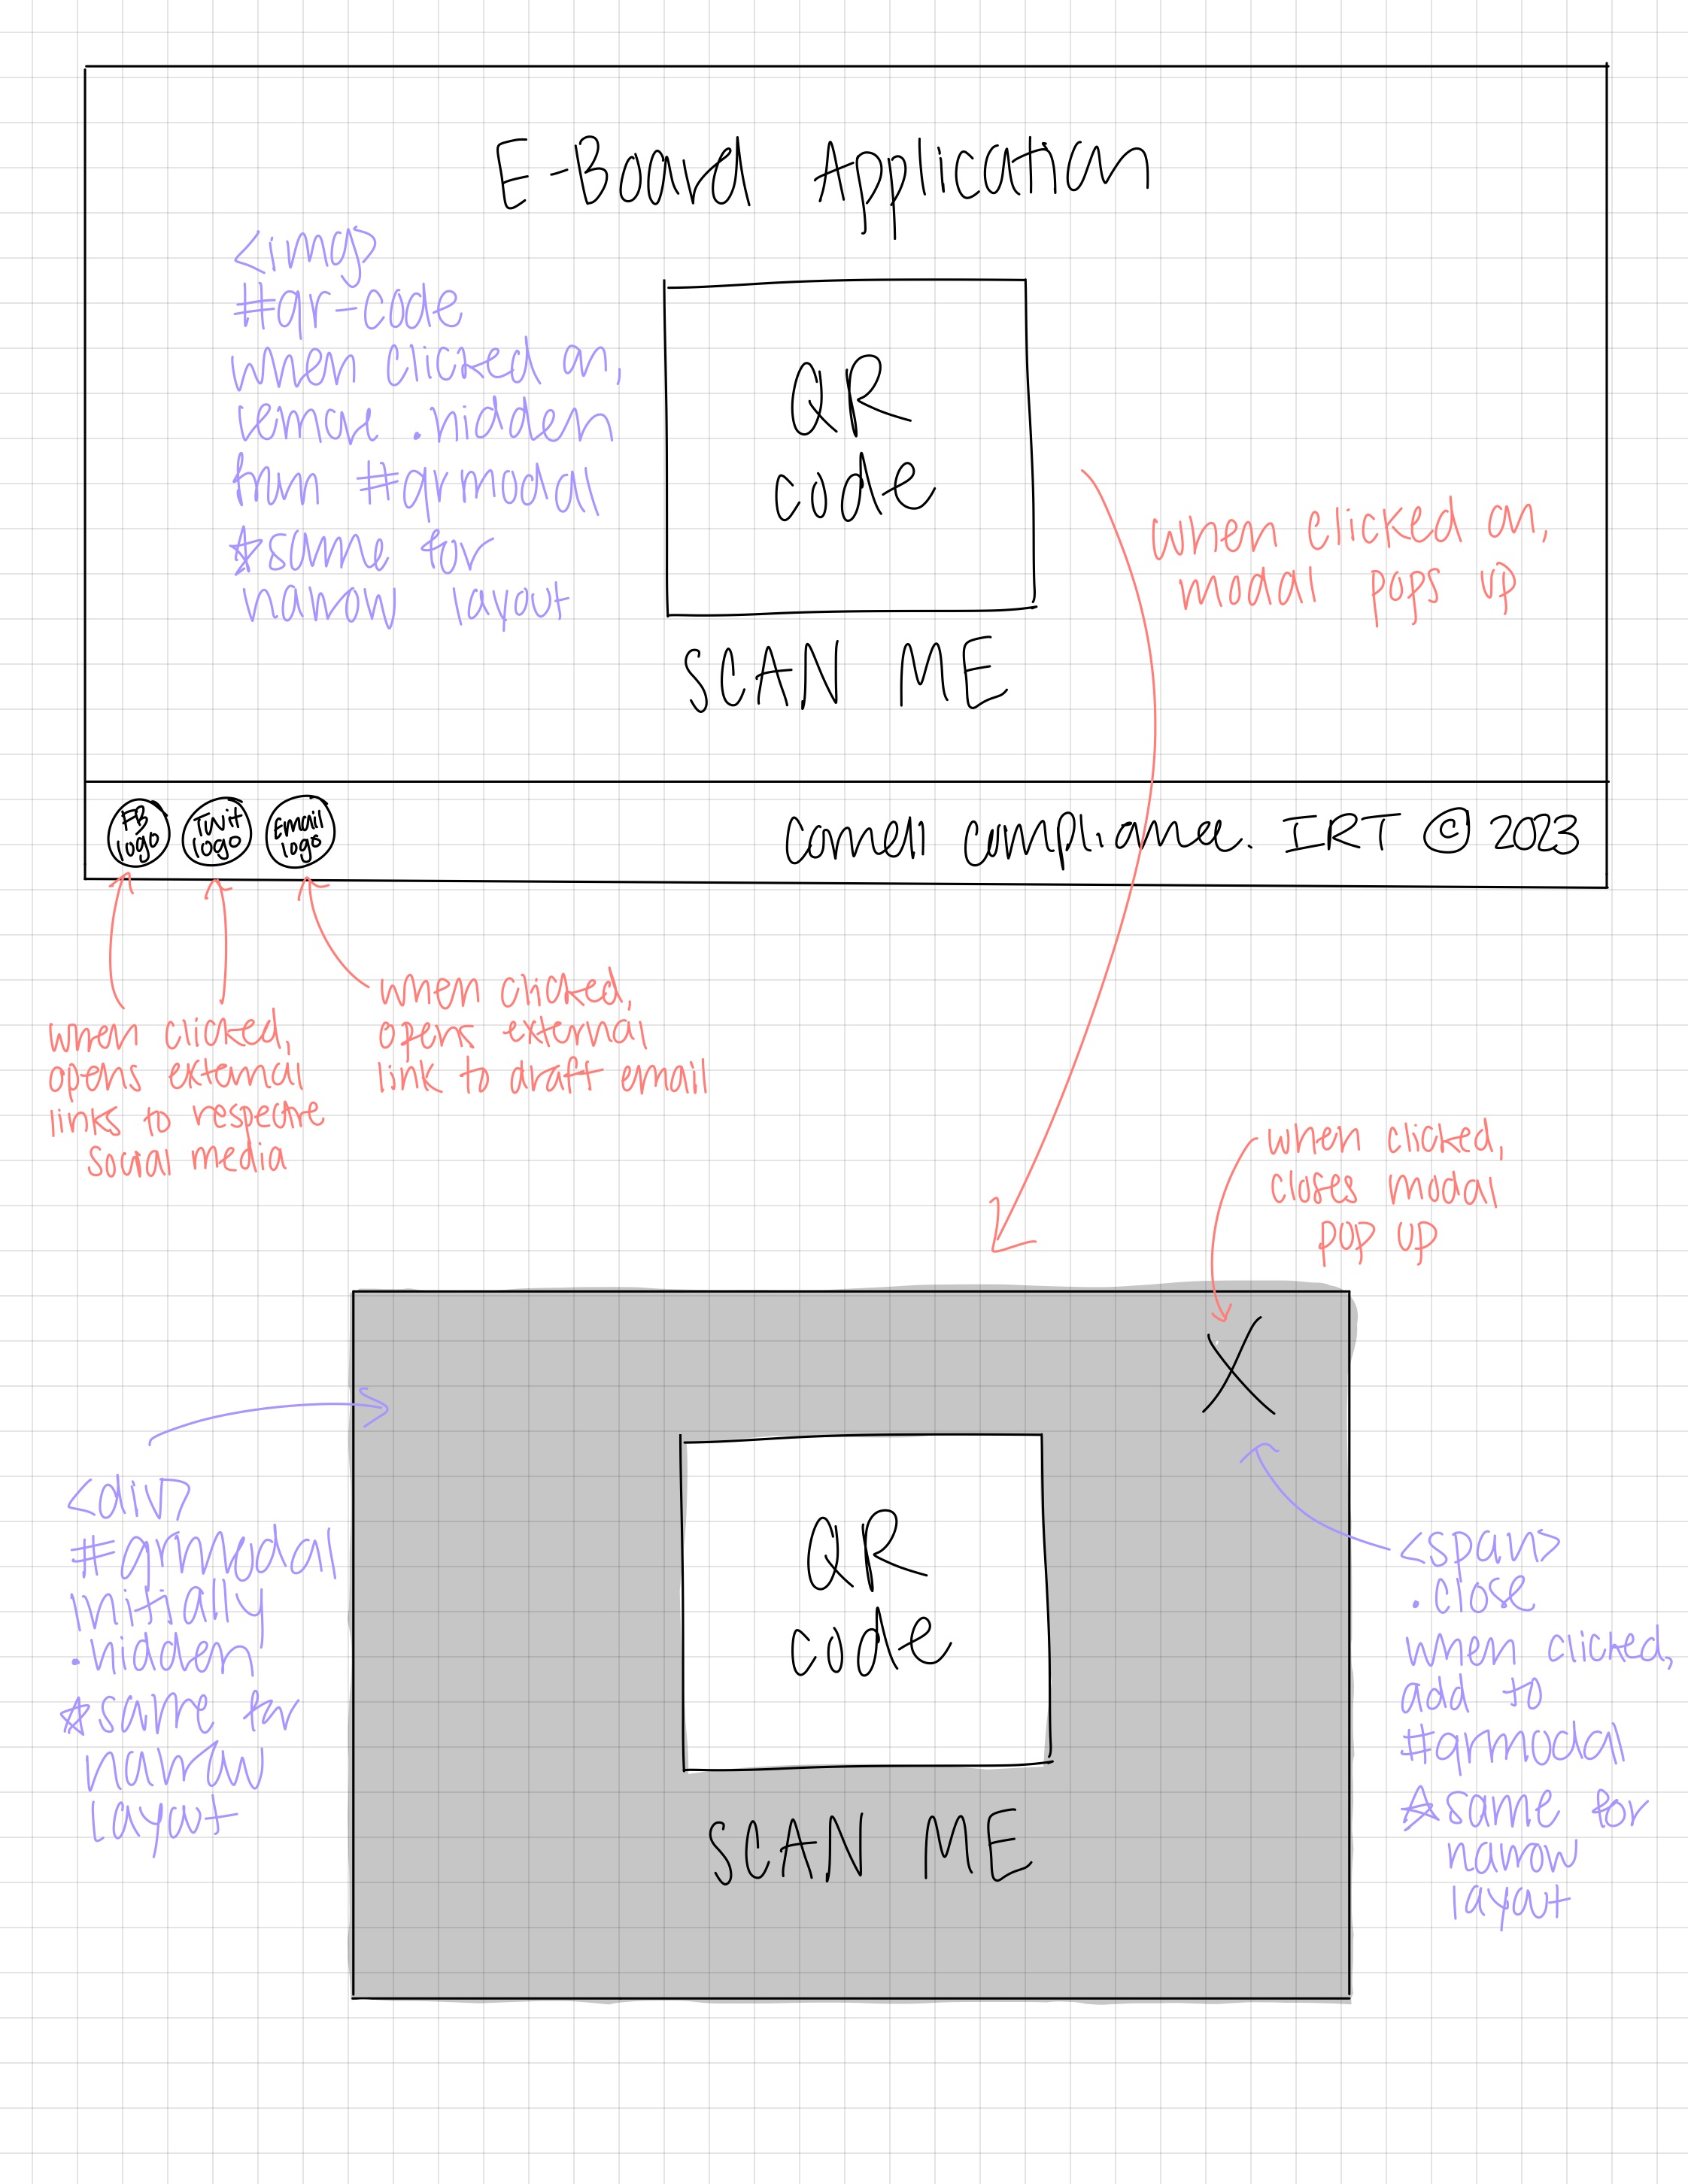 E-Board Application
<img>
#qr-code
when clicked on,
remove .hidden
from #qrmodal
☆same for
narrow layout
QR
code
when clicked on,
modal pops up
SCAN ME
FB
logo
Twit
logo
Email
logo
Cornell Compliance. IRT © 2023
when clicked,
opens external
links to respective
social media
when clicked,
opens external
link to draft email
when clicked,
closes modal
pop up
X
<div>
#qrmodal
initially
.hidden
☆same for
narrow
layout
QR
code
SCAN ME
<span>
.close
when clicked,
add to
#qrmodal
☆same for
narrow
layout